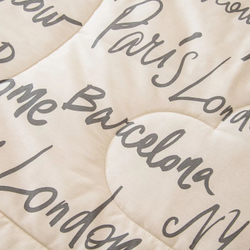 Paris
London
Rome Barcelona
London
NY